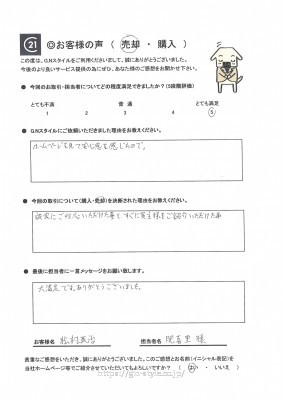 ㉑ ◎お客様の声 （ 売却 ・ 購入 ）
この度は、G.Nスタイルをご利用くださいまして、誠にありがとうございました。
今後のより良いサービス提供の為にぜひ、あなた様のご感想をお聞かせ下さい。
● 今回のお取引・担当者についてどの程度満足できましたか？（5段階評価）
とても不満 普通 とても満足
1 2 3 4 5
G.Nスタイルにご依頼いただきました理由をお教えください。
ホームページを見て安心感を感じたので。
● 今回の取引について（購入・売却）を決断された理由をお教えください。
誠実にご対応いただけた事と すぐに買主様をご紹介いただけた事
● 最後に担当者に一言メッセージをお願い致します。
大満足です。ありがとうございました。
お客様名 担当者名 様
貴重なご感想をいただき、誠にありがとうございました。このご感想とお名前（イニシャル表記）を
当社ホームページ等でご紹介させていただいてもよろしいですか？ （ はい ・ いいえ ）